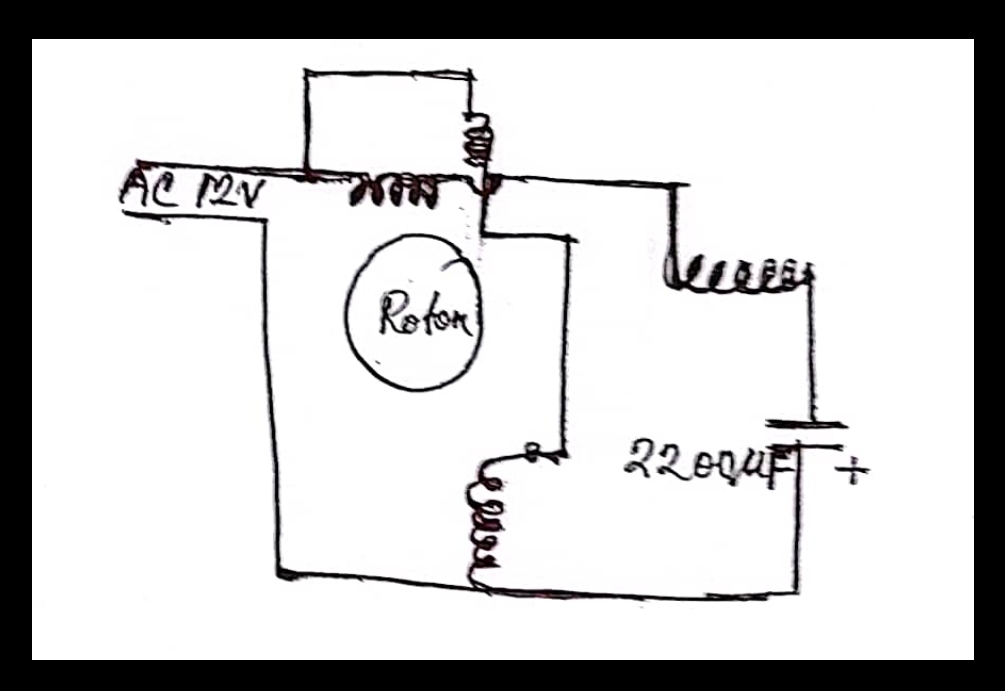 AC 12V
Rotor
2200µF +